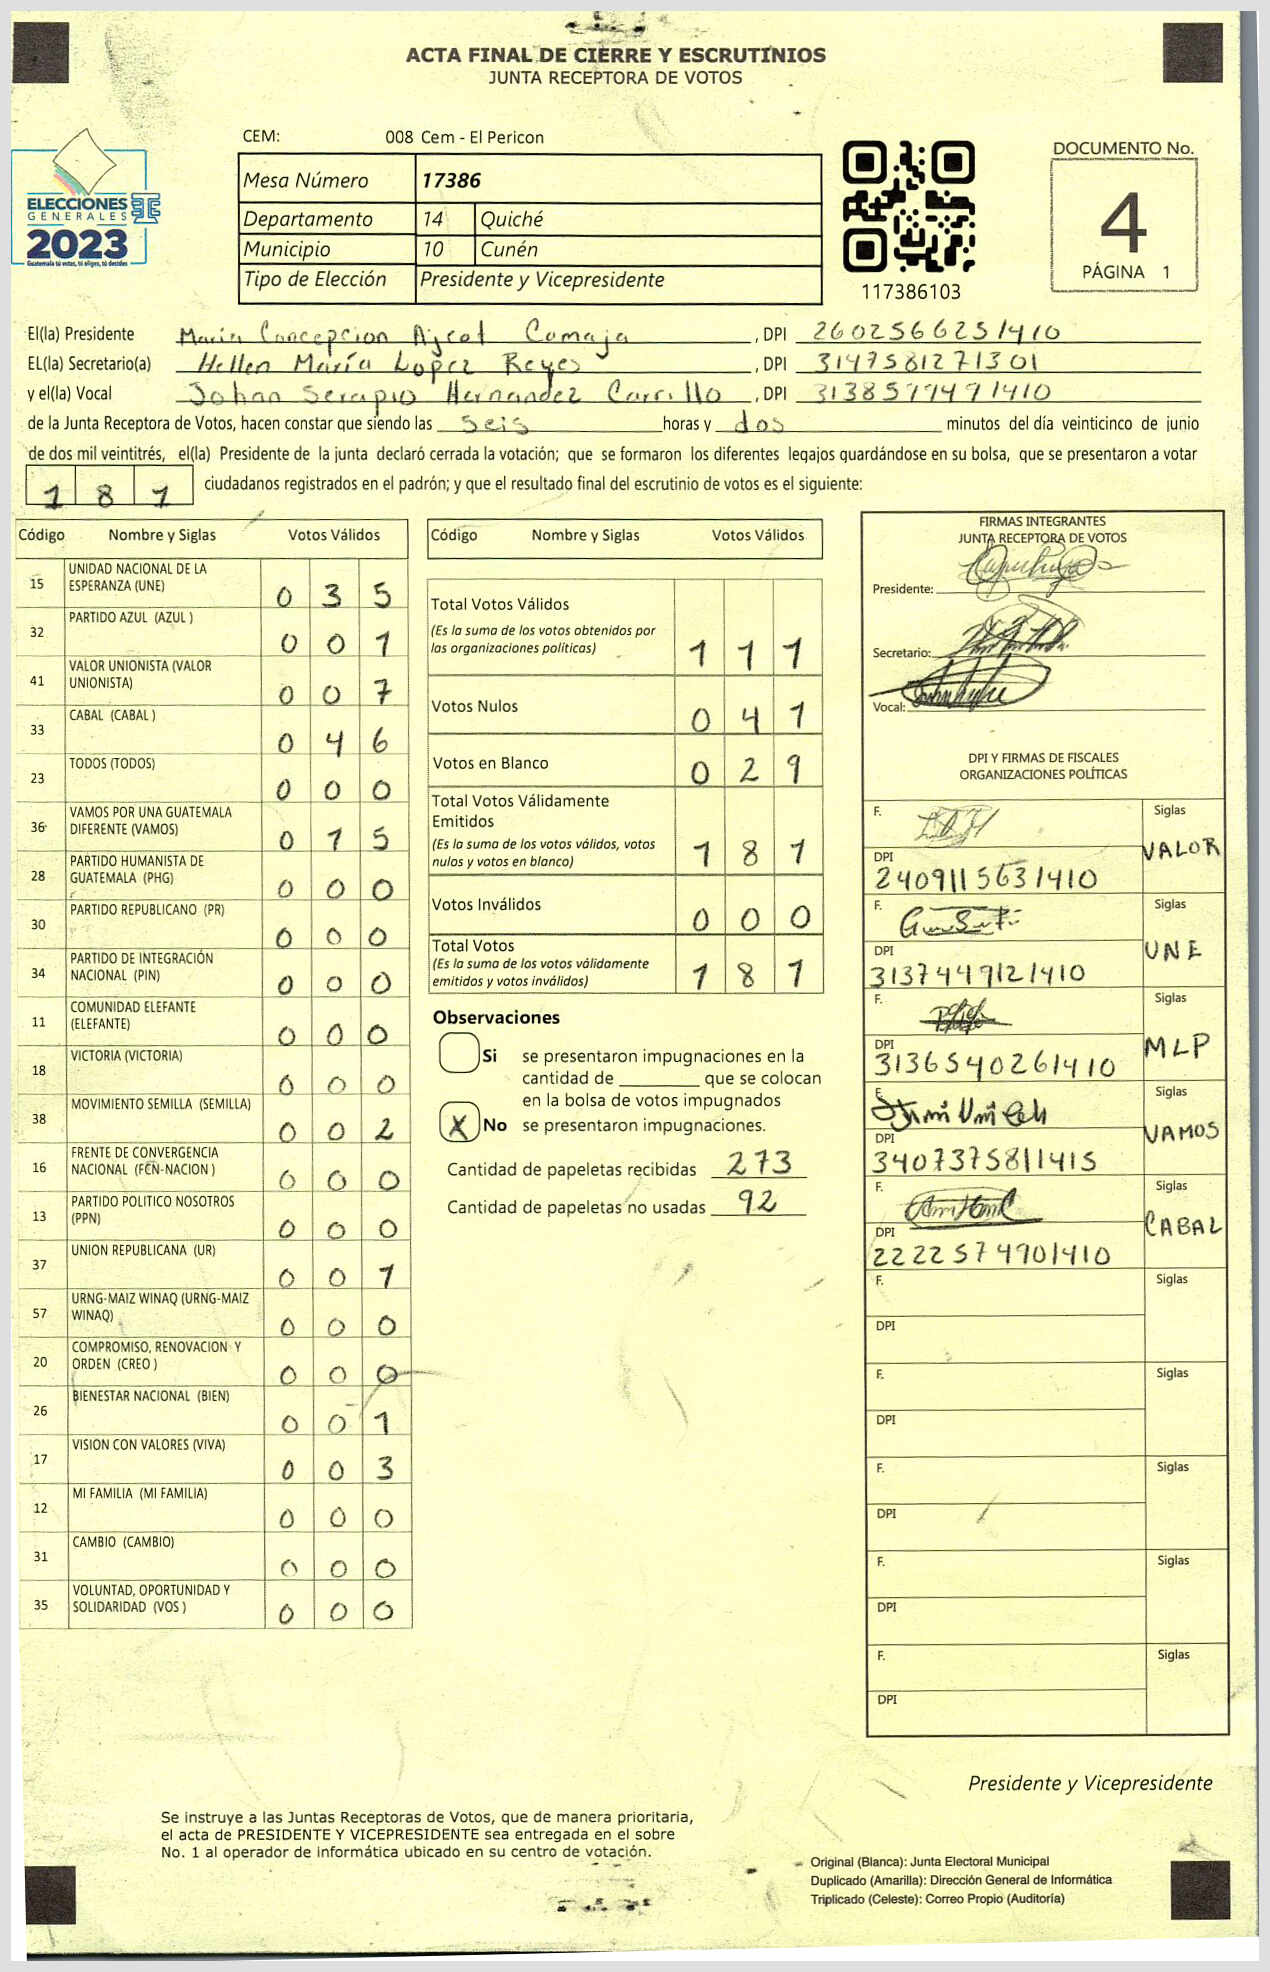 ACTA FINAL DE CIERRE Y ESCRUTINIOS
JUNTA RECEPTORA DE VOTOS
CEM: 008 Cem - El Pericon
ELECCIONES
GENERALES
2023
Guatemala tú votas, tú eliges, tú decides
Mesa Número 17386
Departamento 14 Quiché
Municipio 10 Cunén
Tipo de Elección Presidente y Vicepresidente
117386103
DOCUMENTO No.
4
PÁGINA 1
El(la) Presidente María Concepcion Ajcot Camaja, DPI 2602566251410
EL(la) Secretario(a) Hellen María Lopez Reyes, DPI 3147581271301
y el(la) Vocal Johan Serapio Hernandez Carrillo, DPI 3138579491410
de la Junta Receptora de Votos, hacen constar que siendo las seis horas y dos minutos del día veinticinco de junio
de dos mil veintitrés, el(la) Presidente de la junta declaró cerrada la votación; que se formaron los diferentes legajos guardándose en su bolsa, que se presentaron a votar
1 8 1 ciudadanos registrados en el padrón; y que el resultado final del escrutinio de votos es el siguiente:
Código Nombre y Siglas Votos Válidos
15 UNIDAD NACIONAL DE LA ESPERANZA (UNE) 0 3 5
32 PARTIDO AZUL (AZUL ) 0 0 1
41 VALOR UNIONISTA (VALOR UNIONISTA) 0 0 7
33 CABAL (CABAL ) 0 4 6
23 TODOS (TODOS) 0 0 0
36 VAMOS POR UNA GUATEMALA DIFERENTE (VAMOS) 0 1 5
28 PARTIDO HUMANISTA DE GUATEMALA (PHG) 0 0 0
30 PARTIDO REPUBLICANO (PR) 0 0 0
34 PARTIDO DE INTEGRACIÓN NACIONAL (PIN) 0 0 0
11 COMUNIDAD ELEFANTE (ELEFANTE) 0 0 0
18 VICTORIA (VICTORIA) 0 0 0
38 MOVIMIENTO SEMILLA (SEMILLA) 0 0 2
16 FRENTE DE CONVERGENCIA NACIONAL (FCN-NACION ) 0 0 0
13 PARTIDO POLITICO NOSOTROS (PPN) 0 0 0
37 UNION REPUBLICANA (UR) 0 0 1
57 URNG-MAIZ WINAQ (URNG-MAIZ WINAQ) 0 0 0
20 COMPROMISO, RENOVACION Y ORDEN (CREO ) 0 0 0
26 BIENESTAR NACIONAL (BIEN) 0 0 1
17 VISION CON VALORES (VIVA) 0 0 3
12 MI FAMILIA (MI FAMILIA) 0 0 0
31 CAMBIO (CAMBIO) 0 0 0
35 VOLUNTAD, OPORTUNIDAD Y SOLIDARIDAD (VOS ) 0 0 0
Código Nombre y Siglas Votos Válidos
Total Votos Válidos
(Es la suma de los votos obtenidos por las organizaciones políticas) 1 1 1
Votos Nulos 0 4 1
Votos en Blanco 0 2 9
Total Votos Válidamente Emitidos
(Es la suma de los votos válidos, votos nulos y votos en blanco) 1 8 1
Votos Inválidos 0 0 0
Total Votos
(Es la suma de los votos válidamente emitidos y votos inválidos) 1 8 1
Observaciones
Si se presentaron impugnaciones en la
cantidad de ________ que se colocan
en la bolsa de votos impugnados
X No se presentaron impugnaciones.
Cantidad de papeletas recibidas 273
Cantidad de papeletas no usadas 92
FIRMAS INTEGRANTES
JUNTA RECEPTORA DE VOTOS
Presidente:
Secretario:
Vocal:
DPI Y FIRMAS DE FISCALES
ORGANIZACIONES POLÍTICAS
F. Siglas
VALOR
DPI
2409115631410
F. Siglas
UNE
DPI
3137449121410
F. Siglas
MLP
DPI
3136540261410
F. Siglas
VAMOS
DPI
3407375811415
F. Siglas
CABAL
DPI
2222574901410
F. Siglas
DPI
F. Siglas
DPI
F. Siglas
DPI
F. Siglas
DPI
F. Siglas
DPI
Presidente y Vicepresidente
Se instruye a las Juntas Receptoras de Votos, que de manera prioritaria,
el acta de PRESIDENTE Y VICEPRESIDENTE sea entregada en el sobre
No. 1 al operador de informática ubicado en su centro de votación.
Original (Blanca): Junta Electoral Municipal
Duplicado (Amarilla): Dirección General de Informática
Triplicado (Celeste): Correo Propio (Auditoría)